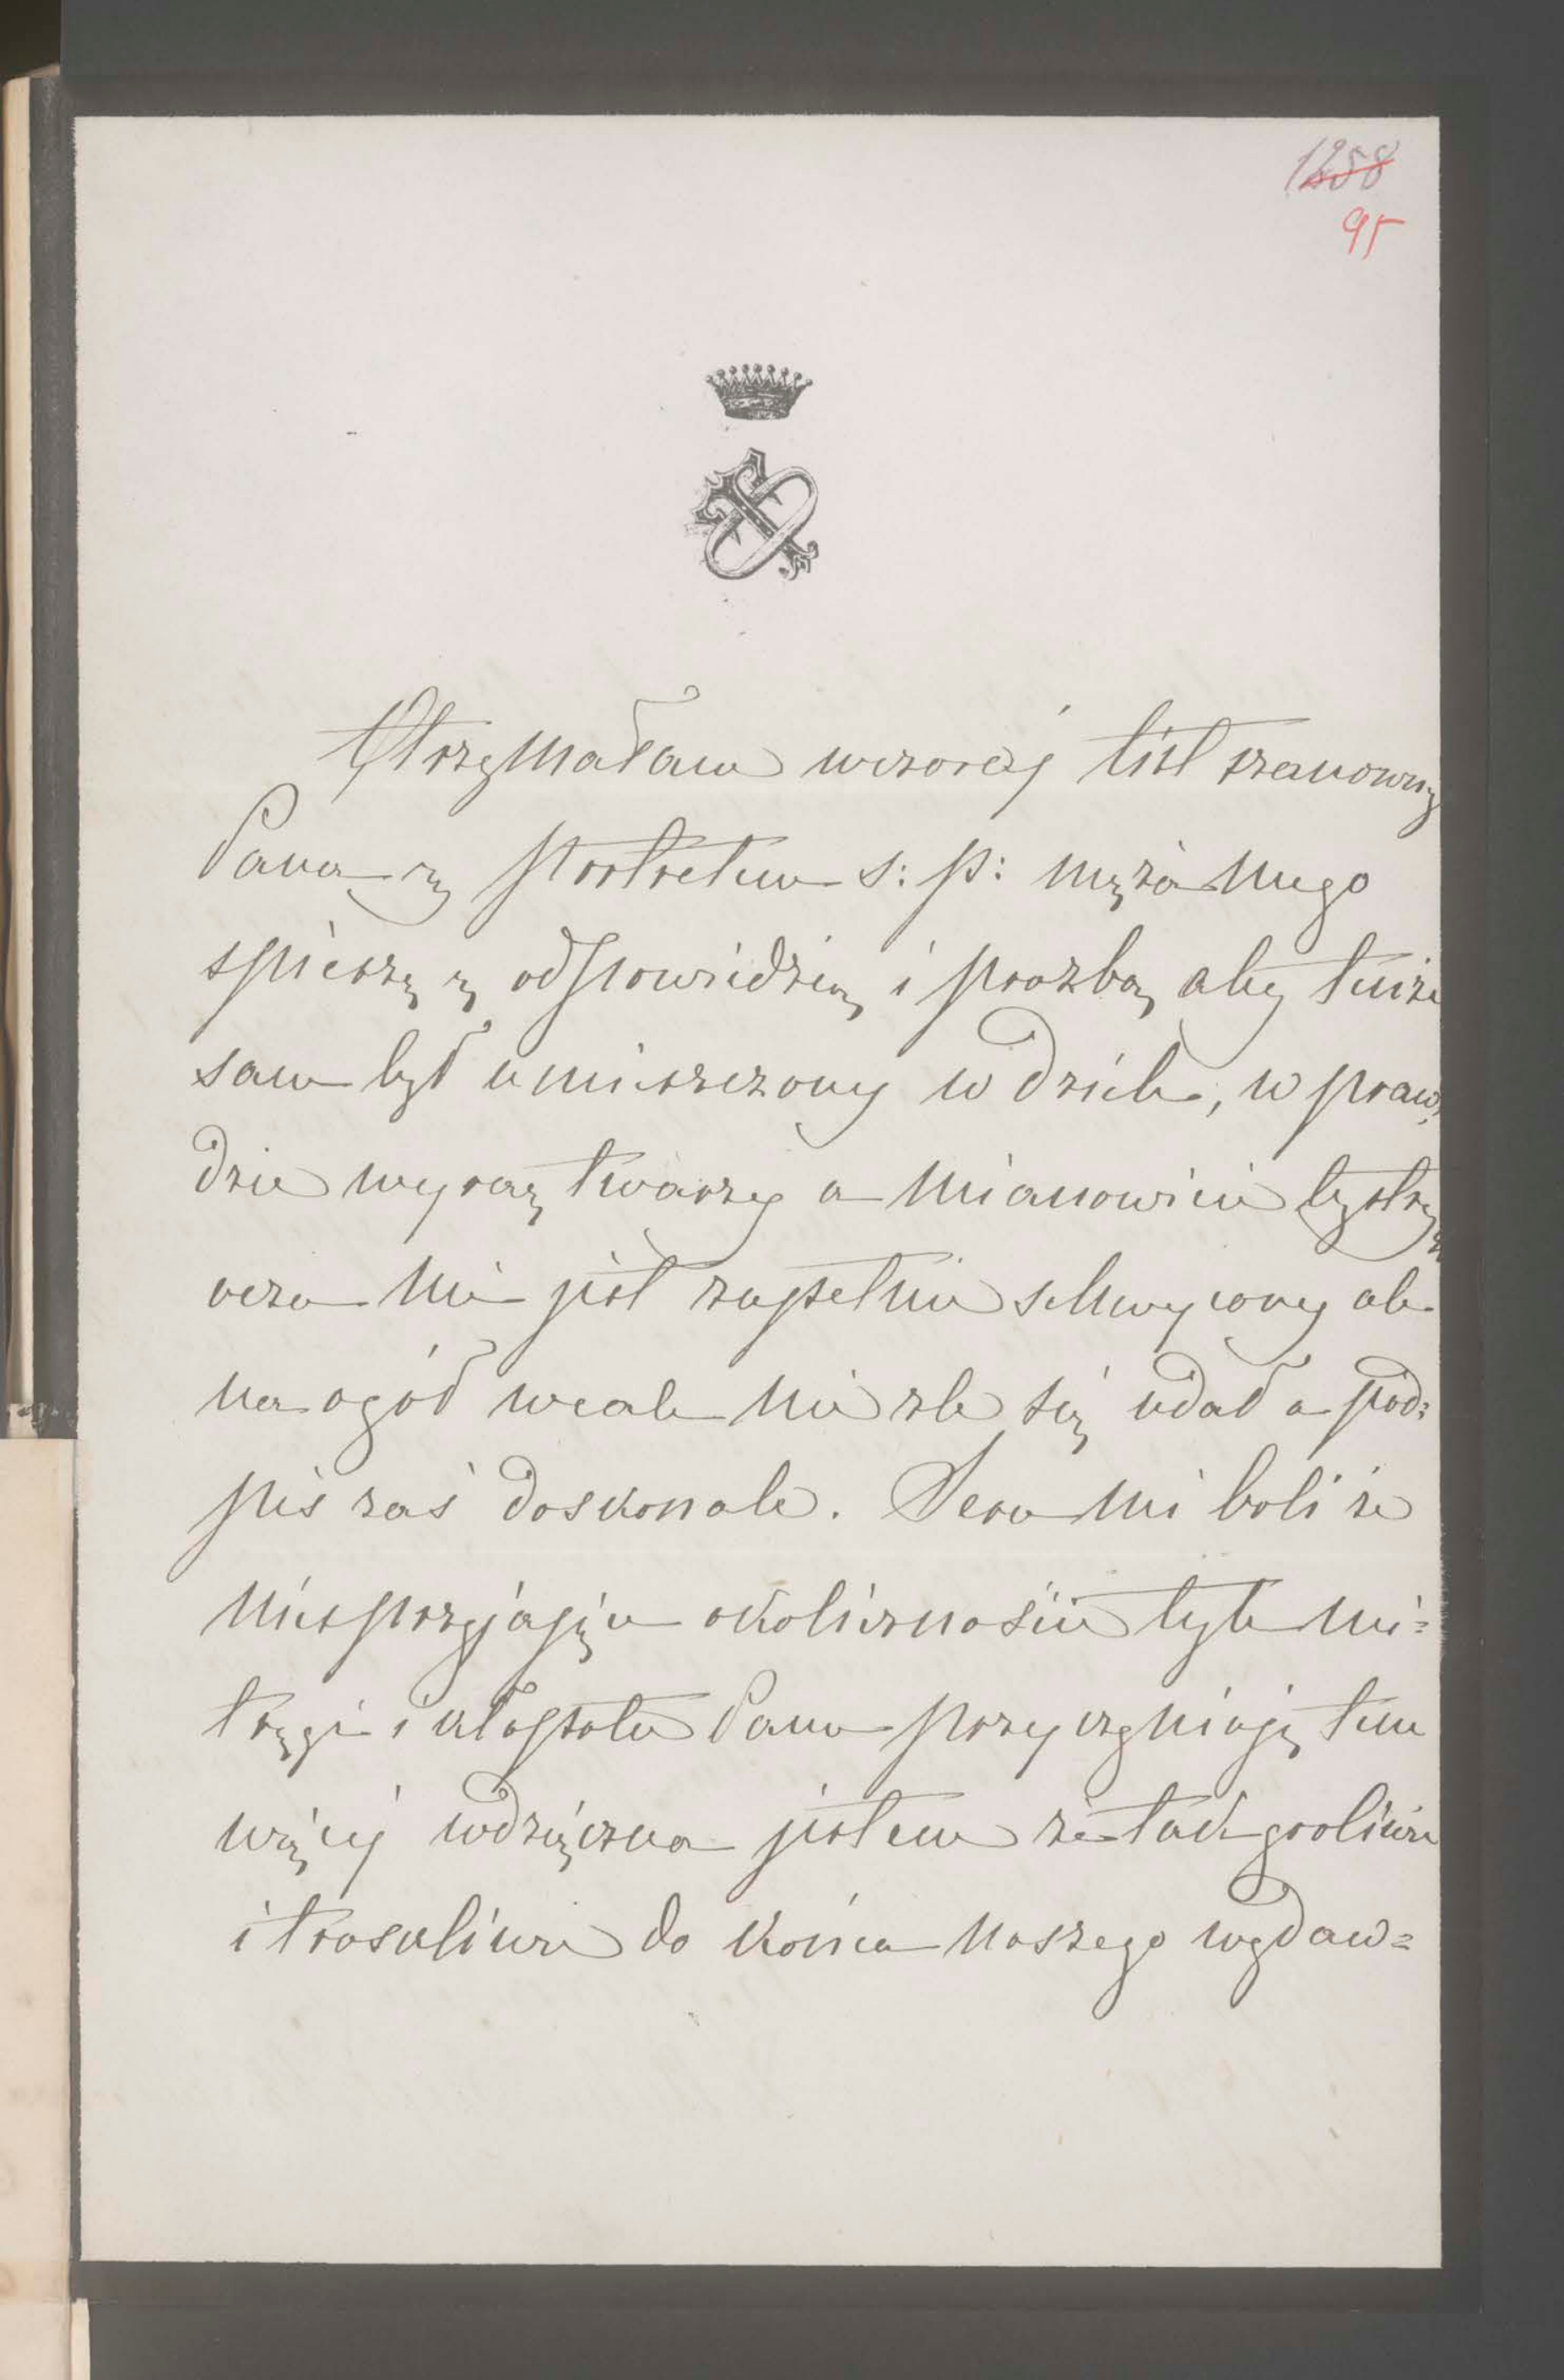 1258
95
Otrzymałam wczoraj list szanowny
Pana z portretem s: p: męża mego
spieszę z odpowiedzią i prozbą aby tenże
sam był umieszczony w dziele, w praw,
dzie wyraz twarzy a mianowicie bystry
ocza nie jest zupełnie schwycony ale
na ogół wcale nie zle się udał a pod:
pis zaś doskonale. Serce mi boli że
niesprzyjające okoliczności tyle mi=
tręgi i kłopotu Panu przyczyniają tem
więcej wdzięczna jestem że tak gorliwie
i troskliwie do końca naszego wydaw=